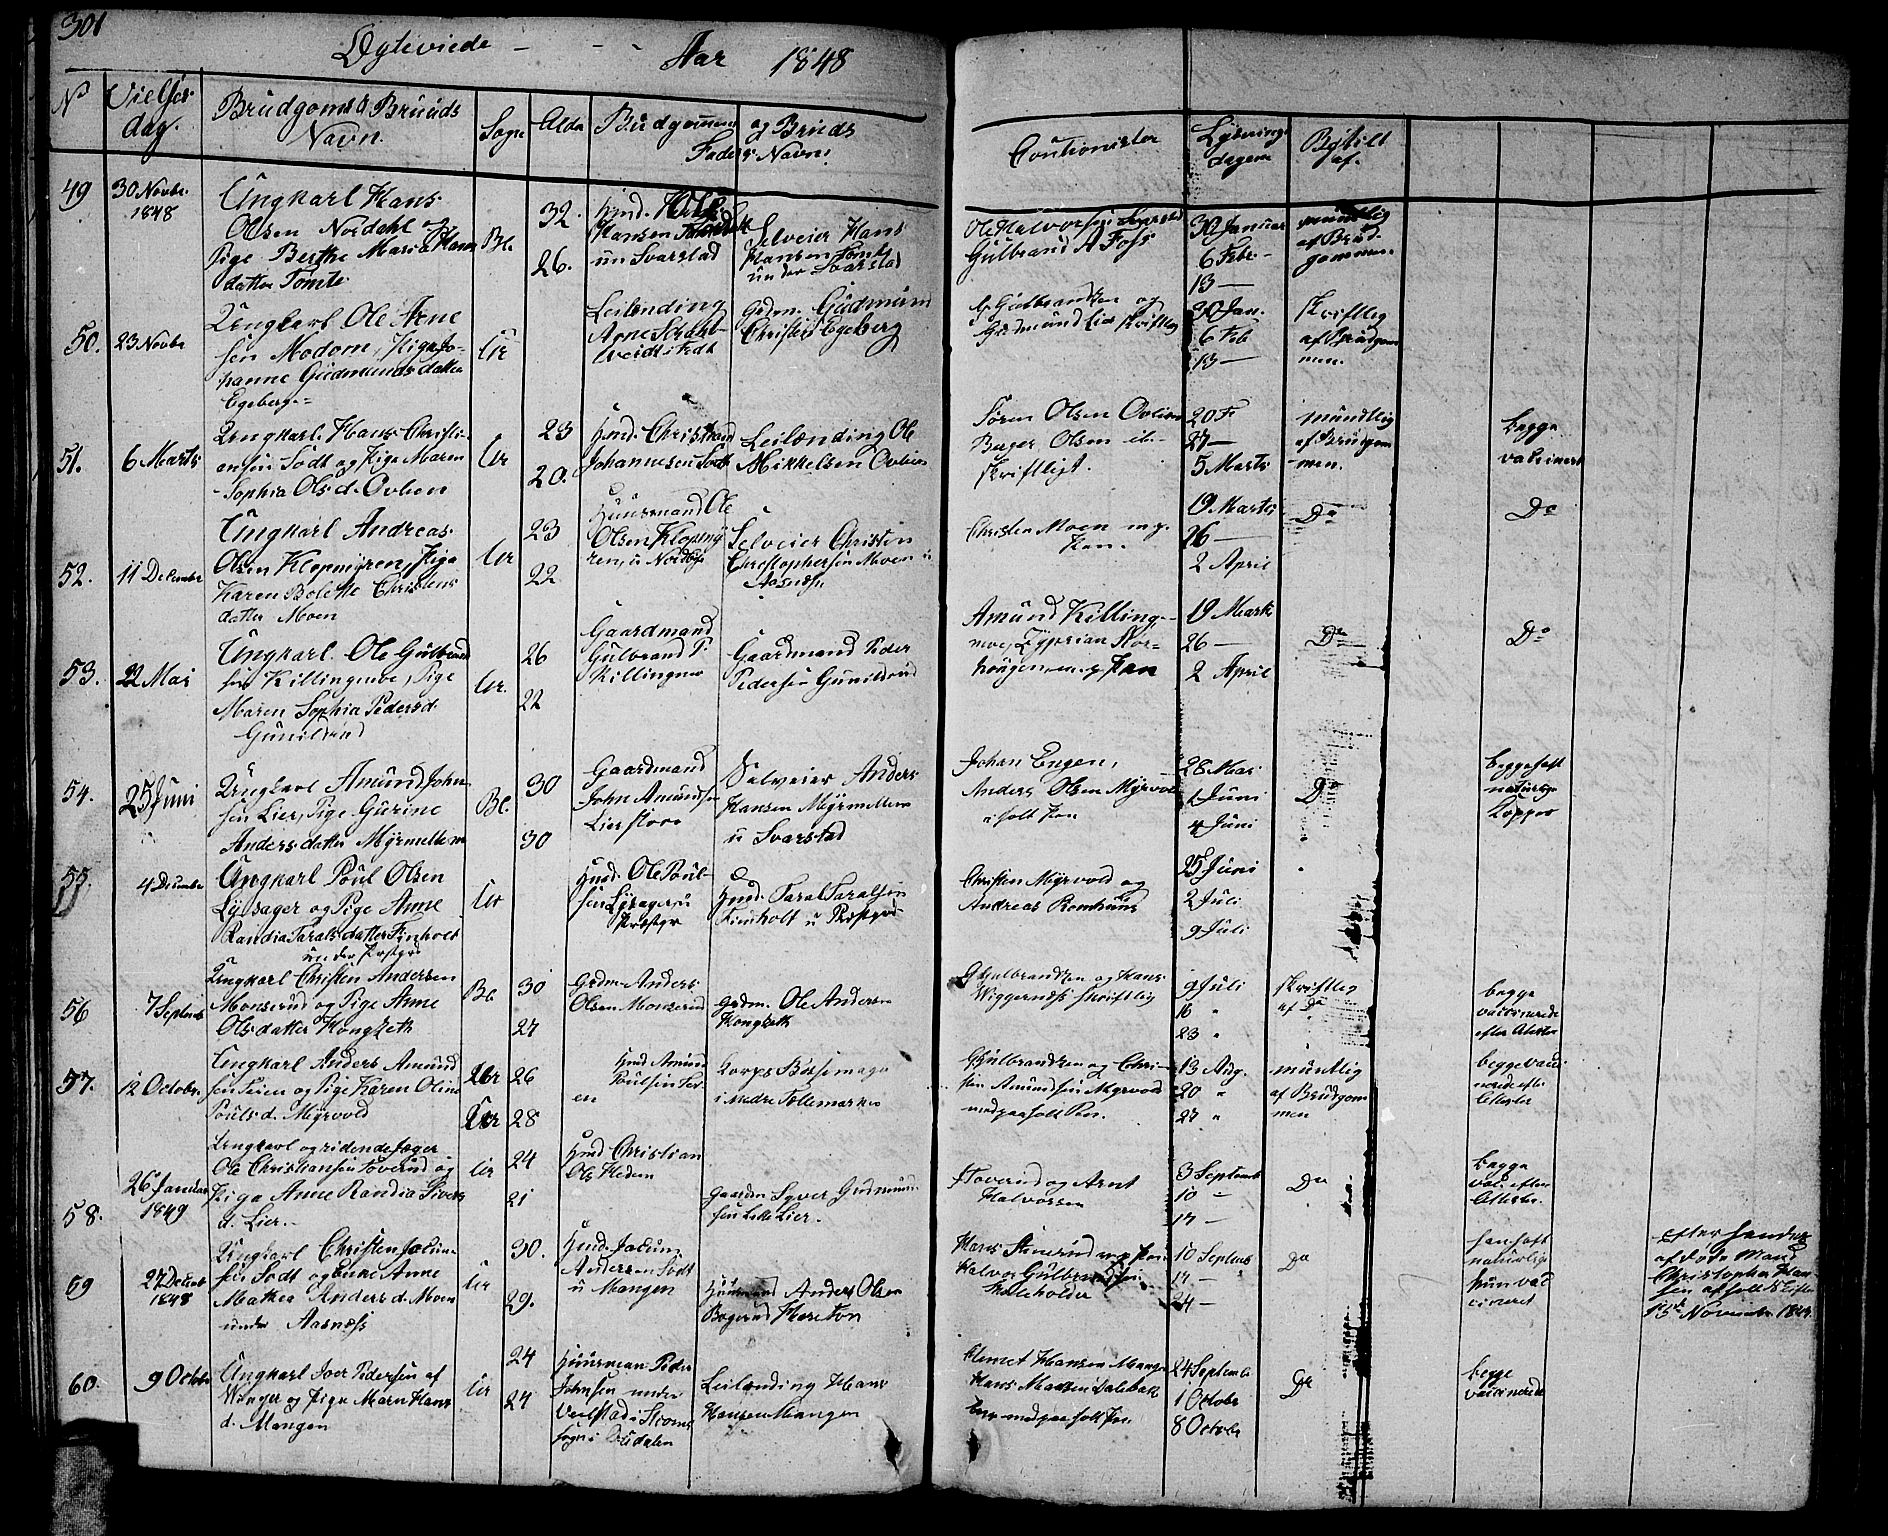 301
Ægteviede - - - Aar 1848
N Vielses- Brudgoms & Bruds Sogn Alder Brudgommens og Bruds
dag. Navn. Faders Navn. Cautionister Lysnings Bestilt
dagene af.
49 30 Novbr. Ungkarl Hans
1848 Olsen Nordahl og
Pige Berthe Maria Hans
datter Tømte
Bl. 32. 26.
Hmd. Ole
Hansen
un Svarstad
Selveier Hans
Hansen Tømte
under Svarstad
Ole Halvorsen Svarstad
Gulbrand A Foss
30 Januar
6 Febr.
13 —
mundlig
af Brud
gommen.
50. 23 Novbr Ungkarl Ole Arne
sen Modom, Pige Jo-
hanne Gudmunds datter
Egeberg.
Ur
Leilending
Arne
Grdm. Gudmund
Christens Egeberg
G. Gulbrandsen og
Gudmund Lier skriftlig
30 Jan.
6 Feb
13 —
skriftlig
af Brudgom
men.
51. 6 Marts Ungkarl Hans Christi-
ansen Sødt og Pige Maren
Sophia Ols d. Ovlien
Ur 23 20.
Hmd. Christian
Johannesen Sødt
Leilending Ole
Mikkelsen Ovlien
Søren Olsen Ovlien
Børger Olsen ib.
skriftligt.
20 F
27 —
5 Marts
mundlig
af Brudgom
men.
begge
vaccineret
52. 11 December Ungkarl Andreas
Olsen Klopmyren, Pige
Karen Bolette Christens
datter Moen
Ur 23 22
Huusmand Ole
Olsen Klopmy
ren, u Nordby
Selveier Christen
Christophersen Moen u
Aasnæss
Christen Moen m. p.
Pen.
19 Marts
26 —
2 April
Do Do
53. 22 Mai Ungkarl Ole Gulbrand
sen Killingmoe, Pige
Maren Sophia Pedersd.
Gunildrud
Ur. 26 22
Gaardmand
Gulbrand P.
Killingmo
Gaardmand Peder
Pedersen Gunildrud
Amund Killing-
moe, Zyprian Nor-
haugen, m. p. Pen
19 Marts
26 —
2 April
Do Do
54. 25 Juni Ungkarl Amund John
sen Lier, Pige Gurine
Anders datter Myrmellem
Bl. 30 30
Gaardmand
John Amundsen
Lier store
Selveier Anders
Hansen Myrmellem
u Svarstad
Johan Engen,
Anders Olsen Myrvold
iholt Pen
28 Mai
1 Juni
4 Juni
Do
begge haft
naturlige
Kopper
55. 4 December Ungkarl Poul Olsen
Lysager og Pige Anne
Randia Tarals datter Finholt
under Prestgr
Ur
Hmd. Ole Poul-
sen Lysager u
Prestgr
Hmd. Taral Taralsen
Finholt u Prestgrd
Christen Myrvold og
Andreas Romhuus
25 Juni
2 Juli
9 Juli
56 7 Septemb Ungkarl Christen Andersen
Monserud og Pige Anne
Olsdatter Kongseth
Bl 30 27
Grdm. Anders
Olsen Monserud
grdm. Ole Andersen
Kongseth
G Gulbrandsen og Hans
Wiggernæss skriftlig
9 Juli
16 "
23 "
skriftlig
af Do
begge
vaccinerede
efter Attester
57. 12 Octobr. Ungkarl Anders Amund
sen Teien og Pige Karen Oline
Pouls d. Myrvold
Ur Ur 26 28
Hmd Amund
Poulsen Tei-
en
Corps Bøssemager
i nedre Tellemarken
G Gulbrandsen og Chri-
sten Amundsen Myrvold
medpaaholt Pen.
13 Aug.
20 "
27 "
mundtlig
af Brudgom
men
begge vacci
nerede efter
Attester
58. 26 Januar Ungkarl og ridende Jæger
1849 Ole Christiansen Toverud og
Pige Anne Randia Sivers
d. Lier.
Ur 24 21
Hmd Christian
Ols Hedem
Gaardm Syver Gudmund
sen Lille Lier.
Toverud og Arnt
Halvorsen
3 Septemb
10 —
17 —
Do
begge
vac. efter
Attester.
59 27 Decemb Ungkarl Christen Jacob-
1848 sen Sødt og Enke Anne
Mathea Anders d. Moen
under Aasnæss
Ur 30. 29.
Hmd. Jacob
Andersen Sødt
u Mangen
Huusmand Anders Olsen
Bogerud
Hans Stuerud m. p. Pen.
Halvor Gulbrandsen
Skoleholder
10 Septemb
17 —
24 —
Do
han haft
naturlige
hun vac
cineret
efter hendes
afdøde Mand
Christopher Han
sen afholdt Skifte
15de November 1848.
60. 9 Octobr Ungkarl Joer Pedersen af
Winger og Pige Maren Hans
d. Mangen
Ur 24 24
Huusman Peder
Johnsen under
Veilstad i Strøms
Sogn i Oudalen
Leilending Hans
Hansen Mangen
Clemet Hansen Mangen
Hans Madsen Dalebak
medpaaholt Pen.
24 Septembr
1 Octobr
8 Octobr
Do
begge
vaccinerede